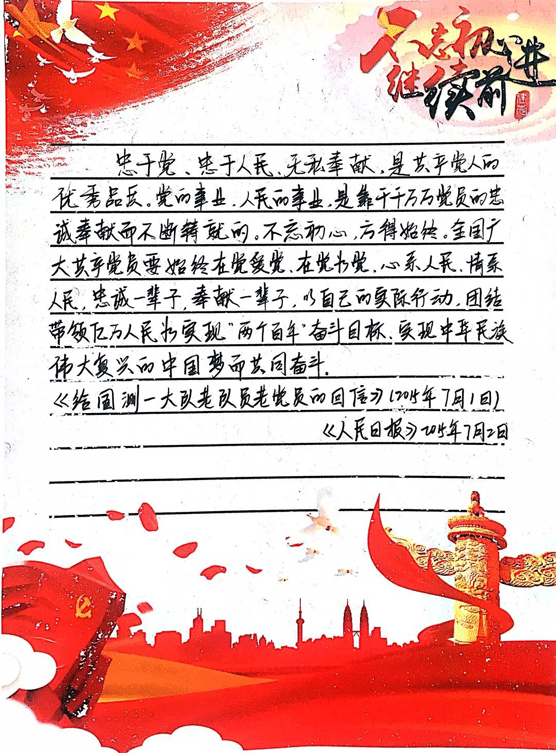 不忘初心
继续前进
忠于党、忠于人民、无私奉献,是共产党人的
优秀品质。党的事业,人民的事业,是靠千千万万党员的忠
诚奉献而不断铸就的。不忘初心,方得始终。全国广
大共产党员要始终在党爱党、在党为党,心系人民、情系
人民,忠诚一辈子,奉献一辈子,以自己的实际行动,团结
带领亿万人民为实现“两个百年”奋斗目标、实现中华民族
伟大复兴的中国梦而共同奋斗.
《给国测一大队老队员老党员的回信》(2015年7月1日)
《人民日报》2015年7月2日